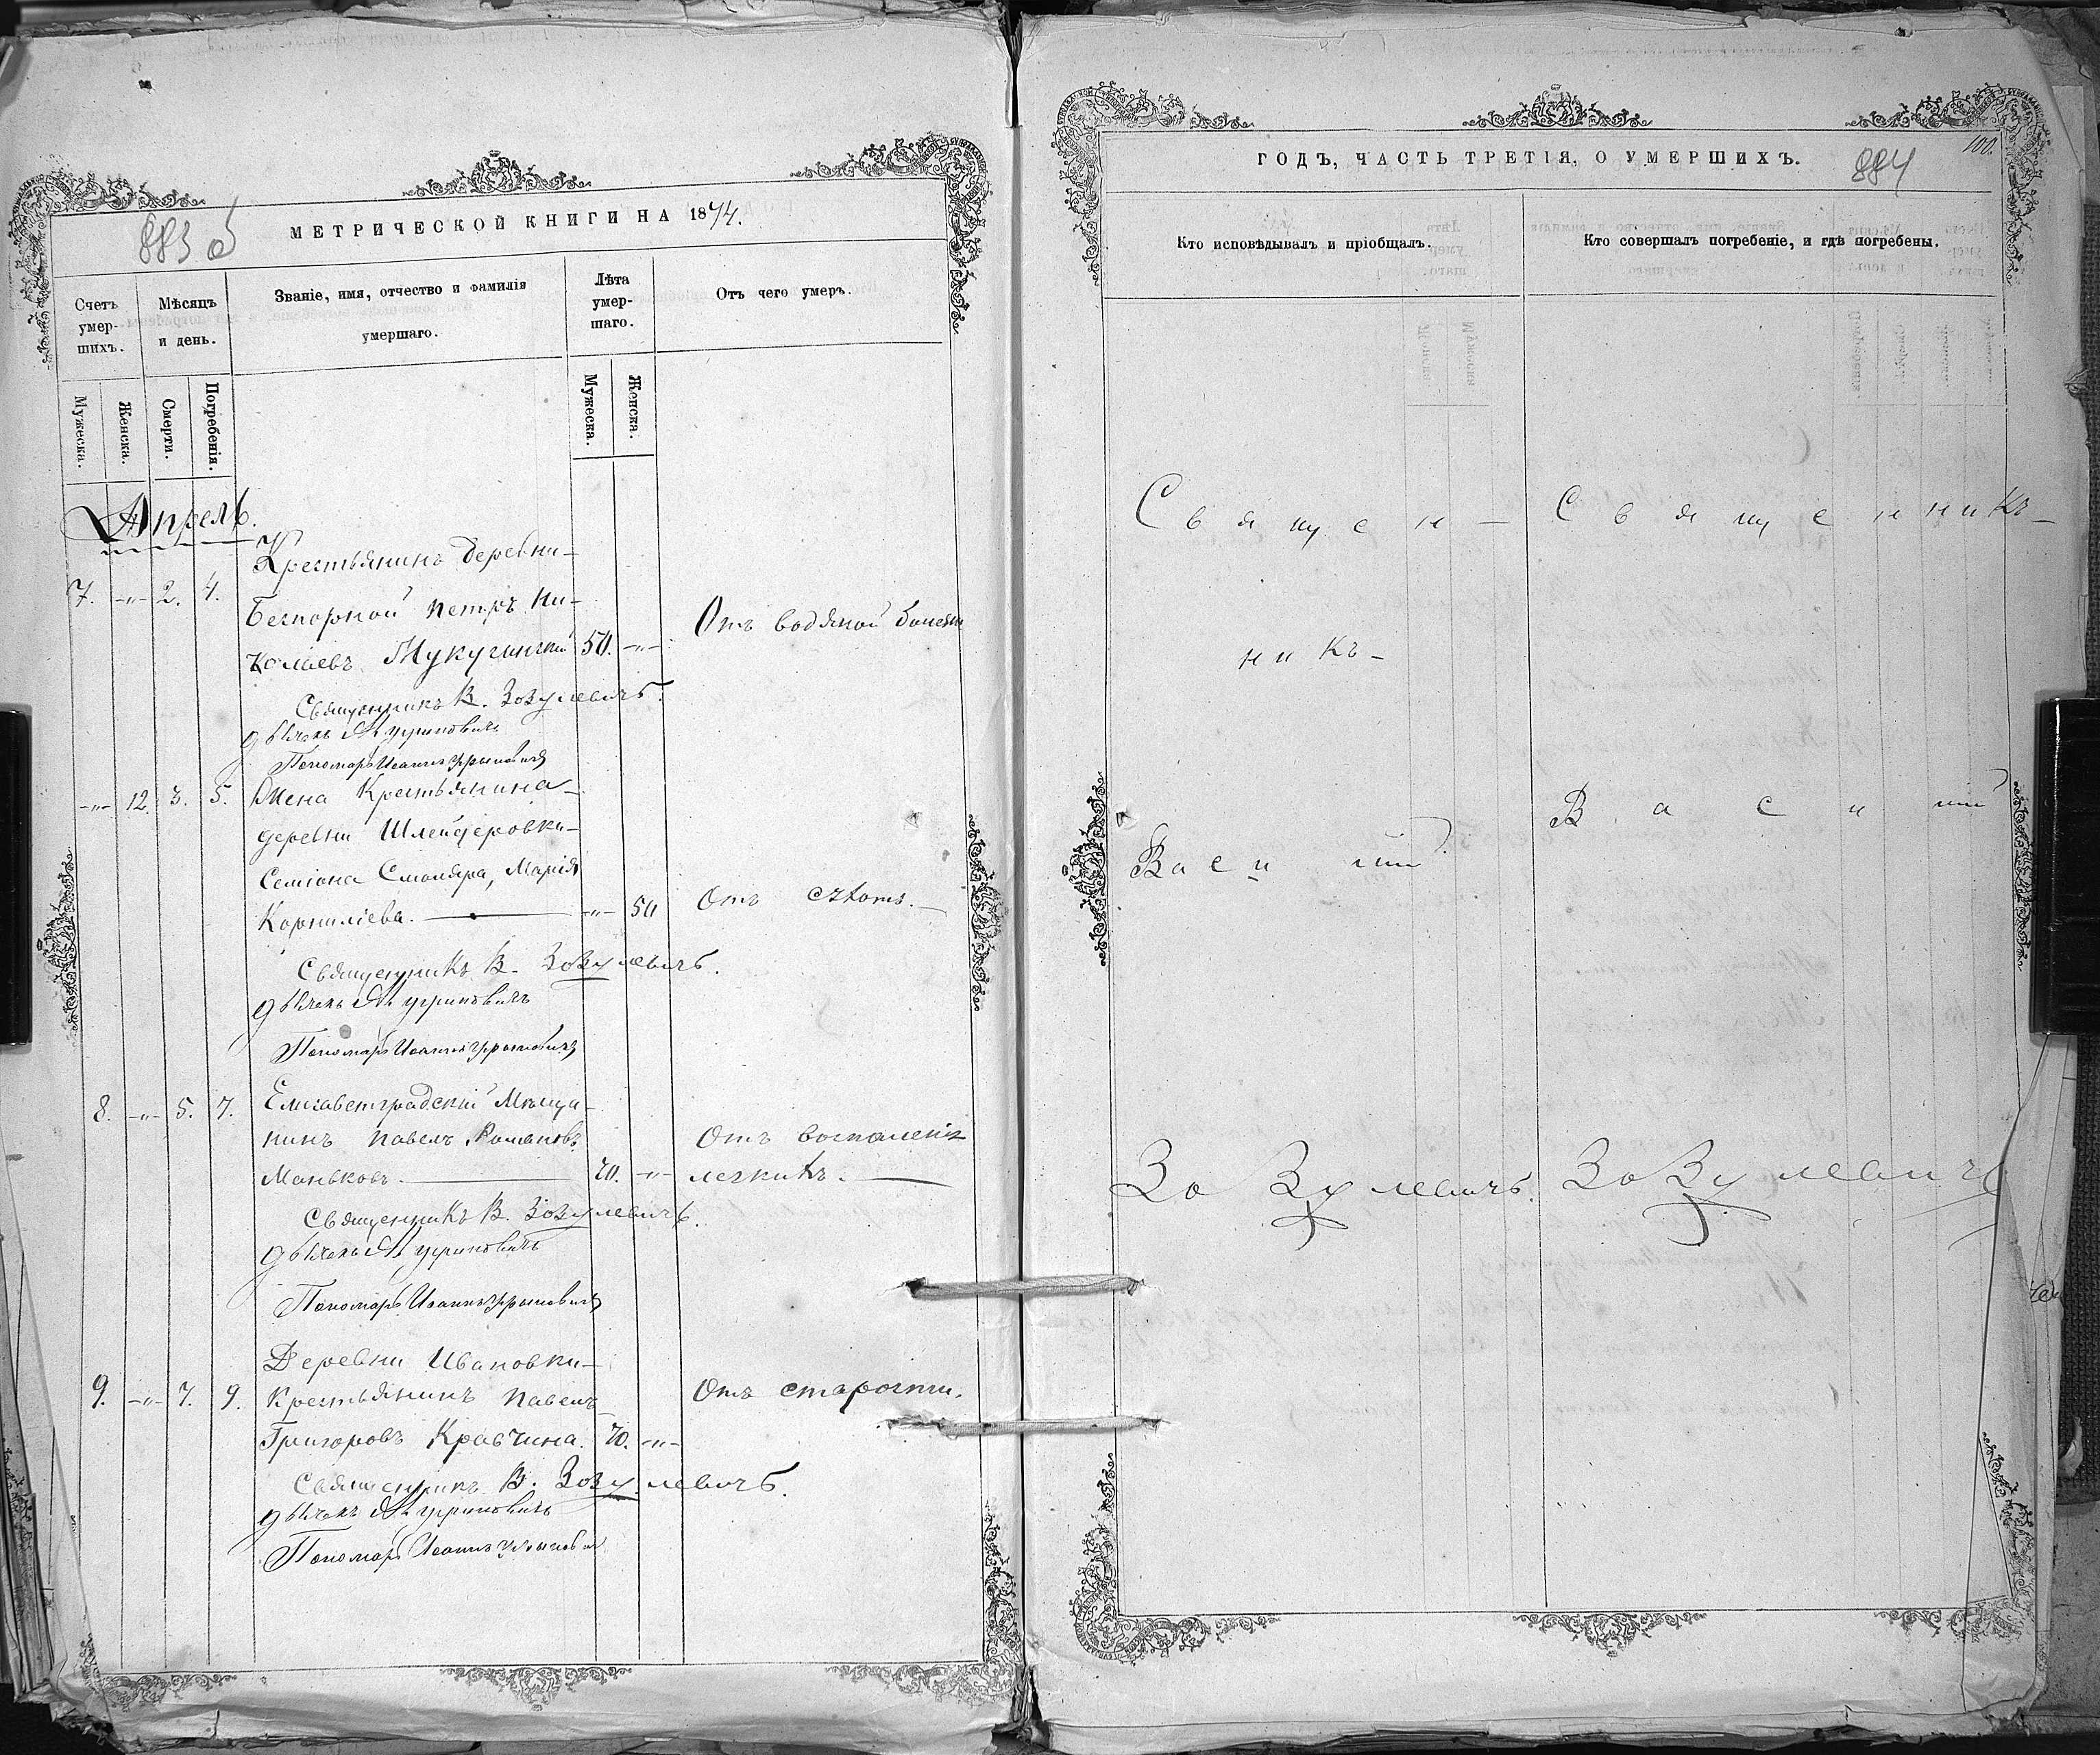 883 об
МЕТРИЧЕСКОЙ КНИГИ НА 1874.
Счетъ умер- шихъ.
Мѣсяцъ и день.
Званіе, имя, отчество и фамилія умершаго.
Лѣта умер- шаго.
Отъ чего умеръ.
Мужеска.
Женска.
Смерти.
Погребенія.
Мужеска.
Женска.
Апрель.
Крестьянинъ деревни
7. -"- 2. 4. Безпорной Петръ Ни-
колаевъ 50. -"- Отъ водяной болезни
Священникъ В. Зозулевичъ.
дьячекъ
Пономарь Иоаннъ
-"- 12. 3. 5. Жена Крестьянина
деревни Шлейферовки
Семіона Смоляра, Марія
Корниліева. -"- 50
Отъ
Священникъ В. Зозулевичъ.
дьячекъ
Пономарь Иоаннъ
8. -"- 5. 7. Елисаветградскій Мѣща-
нинъ Павелъ Романовъ Отъ воспаленія
Маньковъ. 70. -"- легкихъ.
Священникъ В. Зозулевичъ.
дьячекъ
Пономарь Иоаннъ
Деревни Ивановки
9. -"- 7. 9. Крестьянинъ Павелъ Отъ старости.
Григоровъ Кравчина. 70. -"-
Священникъ В. Зозулевичъ.
дьячекъ
Пономарь Иоаннъ
ГОДЪ, ЧАСТЬ ТРЕТІЯ, О УМЕРШИХЪ.
884
100.
Кто исповѣдывалъ и пріобщалъ.
Кто совершалъ погребеніе, и гдѣ погребены.
Священ-
никъ
Василій
Зозулевичъ.
Священникъ
Василій
Зозулевичъ